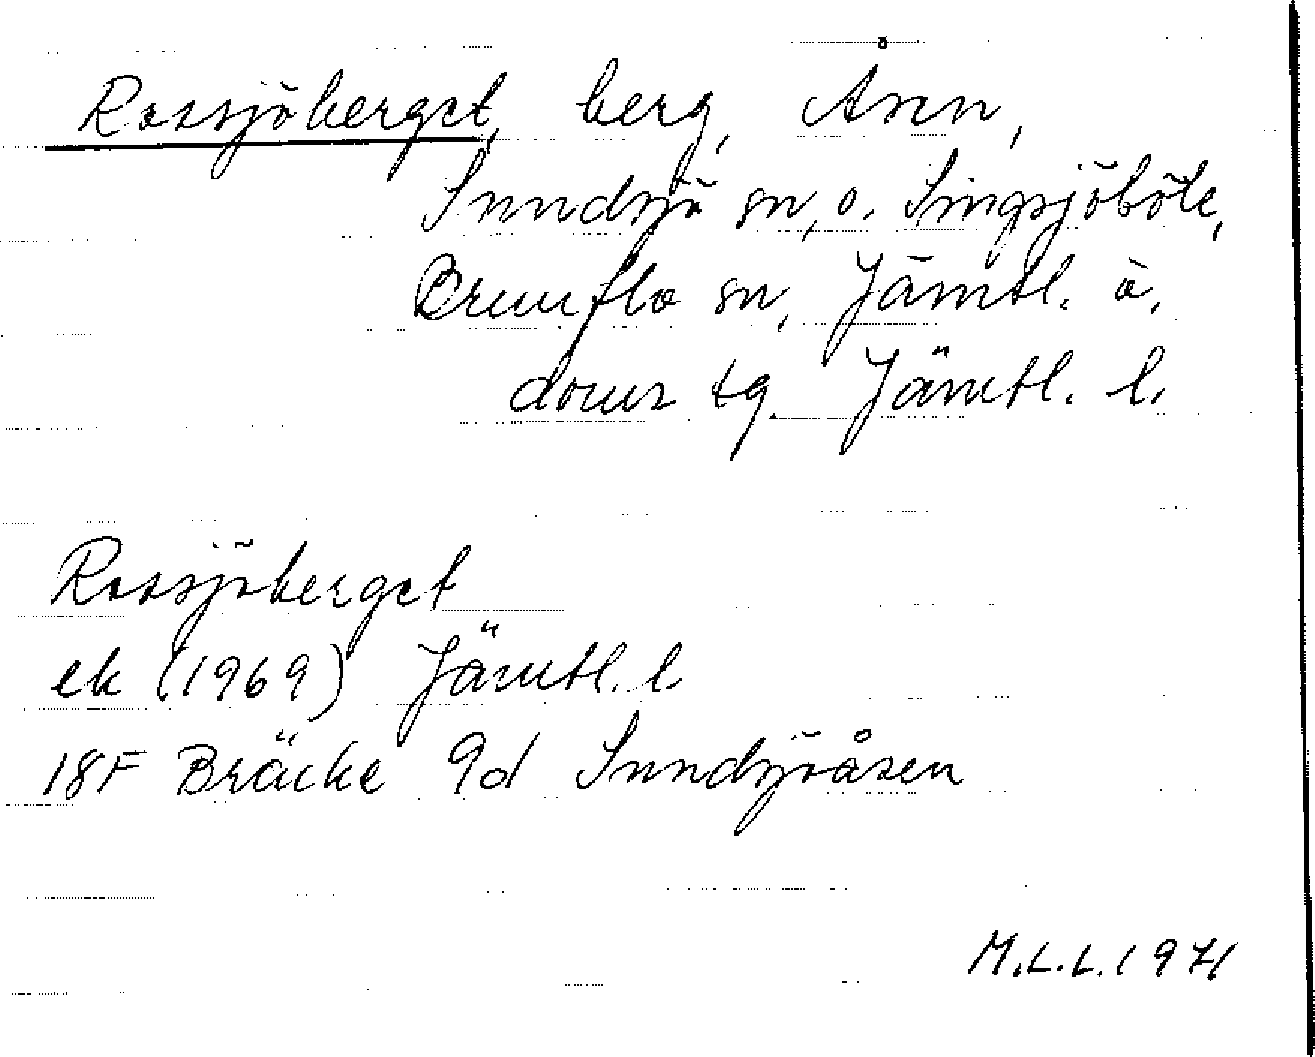 Rossjöberget, berg, Ånn,
Sunndsjö sn, o. Singsjöböle,
Brunflo sn, Jämtl. ö.
doms tg. Jämtl. l.
Rossjöberget
ek (1969) Jämtl. l.
18F Bräcke 9d Sunndsjöåsen
M.L.L. 1971